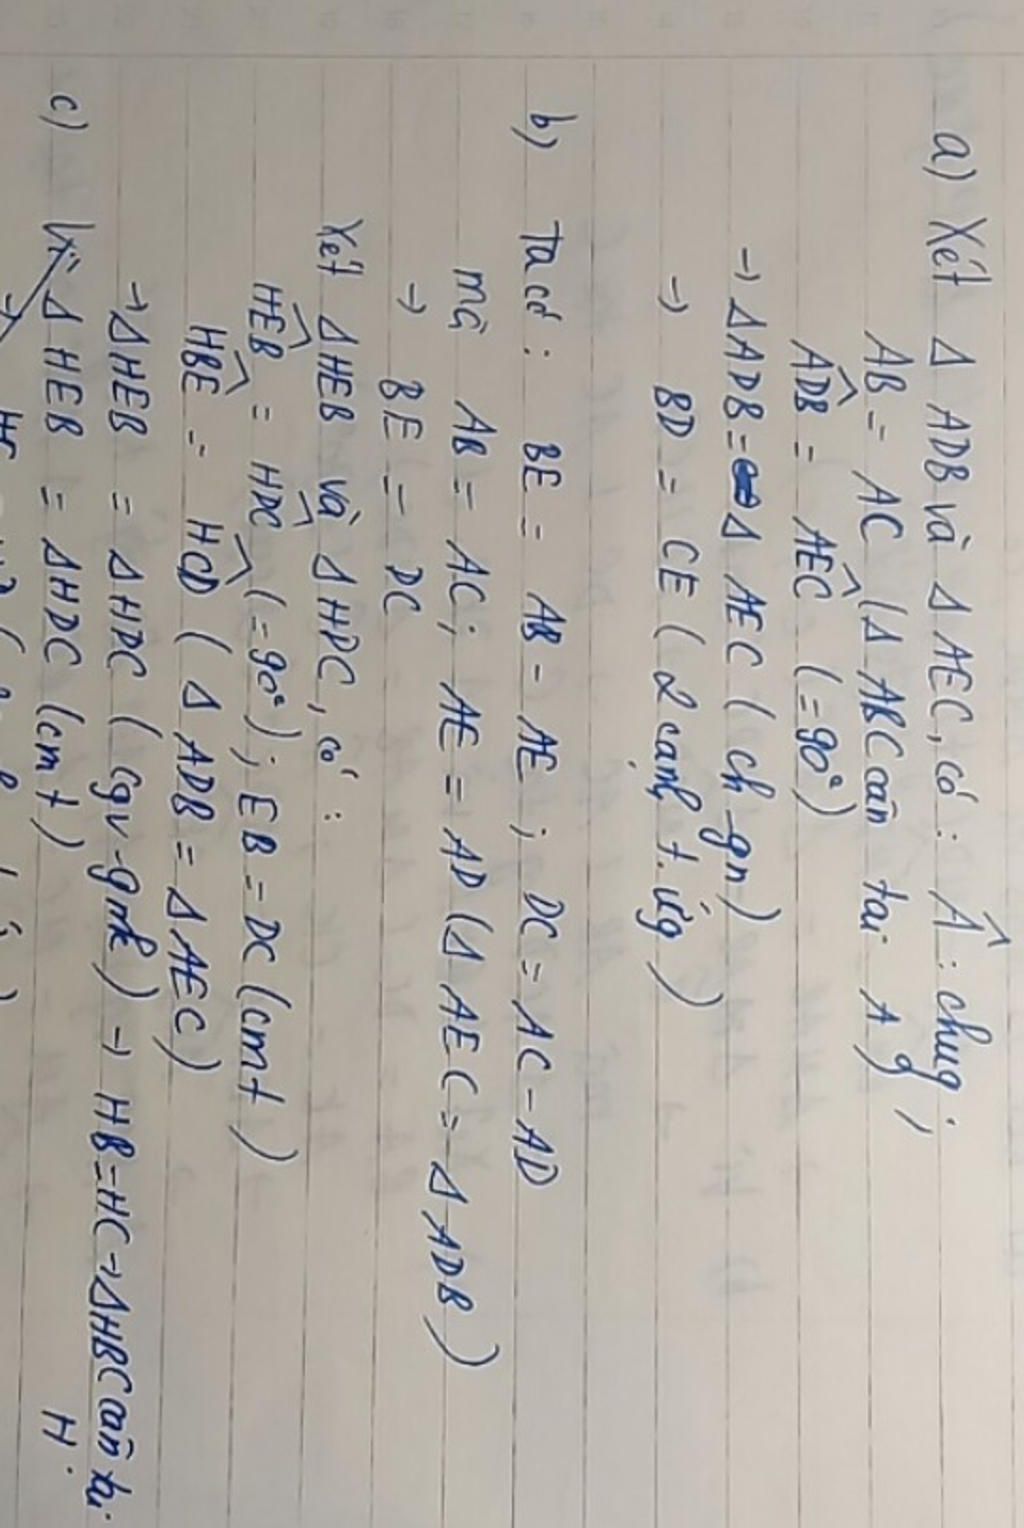 a) Xét Δ ADB và Δ AEC, có: Â: chug;
AB = AC (Δ ABC cân tại A);
ADB̂ = AEĈ (= 90°)
→ ΔADB = Δ AEC (ch-gn)
→ BD = CE (2 cạnh t.ứg)
b) Ta có: BE = AB - AE; DC = AC - AD
mà AB = AC; AE = AD (Δ AEC = Δ ADB)
→ BE = DC
Xét ΔHEB và ΔHDC, có:
HEB̂ = HDĈ (= 90°); EB = DC (cmt)
HBÊ = HCD̂ (Δ ADB = Δ AEC)
→ ΔHEB = ΔHDC (cgv-gnk) → HB = HC → ΔHBC cân tại
H.
c) Vì Δ HEB = ΔHDC (cmt)